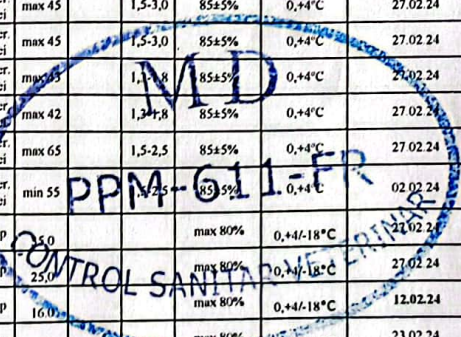 max 45 1,5-3,0 85±5% 0,+4°C 27.02.24
max 45 1,5-3,0 85±5% 0,+4°C 27.02.24
85±5% 0,+4°C 27.02.24
max 42 1,3-1,8 85±5% 0,+4°C 27.02.24
max 65 1,5-2,5 85±5% 0,+4°C 27.02.24
min 55 1,5-2,5 85±5% 0,+4°C 02.02.24
max 80% 0,+4/-18°C 27.02.24
25,0 max 80% 0,+4/-18°C 27.02.24
16.0 max 80% 0,+4/-18°C 12.02.24
23.02.24
MD
PPM-611-FR
CONTROL SANITAR VETERINAR